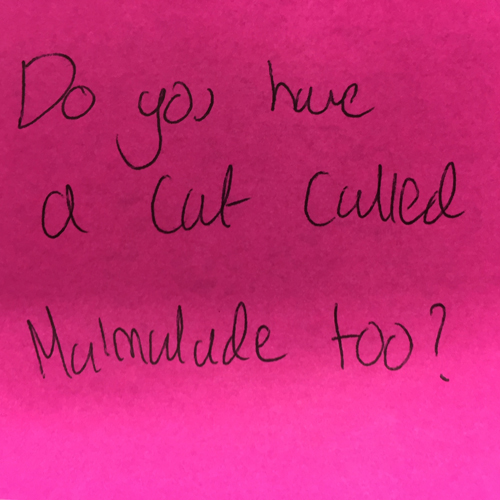 Do you have
a cat called
Marmalade too?